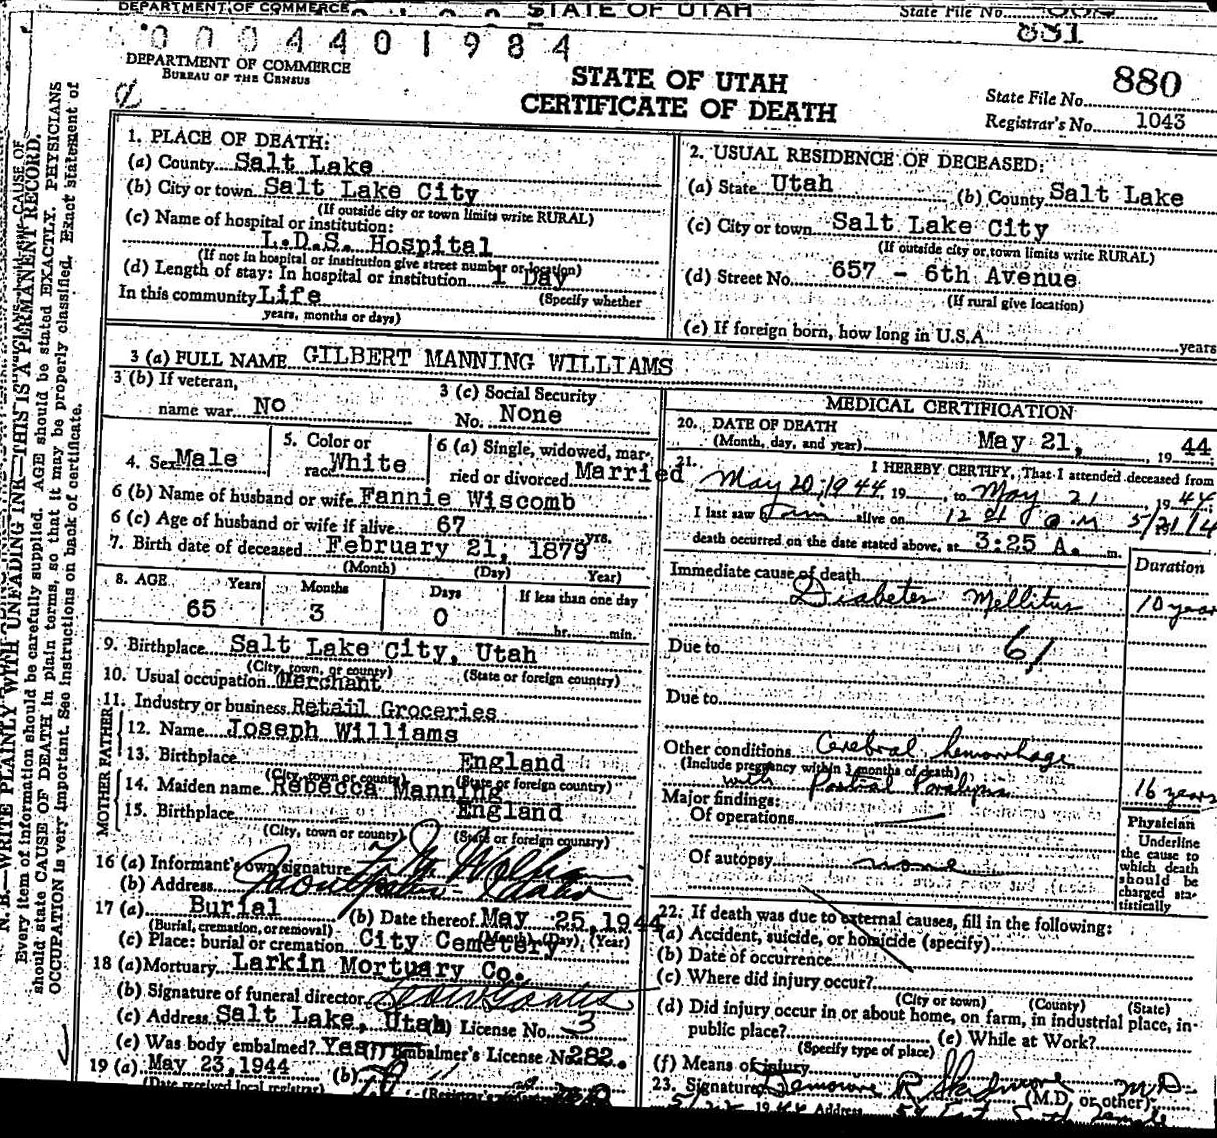 DEPARTMENT OF COMMERCE
STATE OF UTAH
State File No.
881
0 0 0 4 4 0 1 9 8 4
DEPARTMENT OF COMMERCE
BUREAU OF THE CENSUS
STATE OF UTAH
CERTIFICATE OF DEATH
State File No. 880
Registrar's No. 1043
N. B.—WRITE PLAINLY WITH UNFADING INK—THIS IS A PERMANENT RECORD.
Every item of information should be carefully supplied. AGE should be stated EXACTLY. PHYSICIANS
should state CAUSE OF DEATH in plain terms, so that it may be properly classified. Exact statement of
OCCUPATION is very important. See instructions on back of certificate.
1. PLACE OF DEATH:
(a) County Salt Lake
(b) City or town Salt Lake City
(If outside city or town limits write RURAL)
(c) Name of hospital or institution:
L.D.S. Hospital
(If not in hospital or institution give street number or location)
(d) Length of stay: In hospital or institution 1 Day
In this community Life (Specify whether
years, months or days)
2. USUAL RESIDENCE OF DECEASED:
(a) State Utah (b) County Salt Lake
(c) City or town Salt Lake City
(If outside city or town limits write RURAL)
(d) Street No. 657 - 6th Avenue
(If rural give location)
(e) If foreign born, how long in U.S.A. years
3 (a) FULL NAME GILBERT MANNING WILLIAMS
3 (b) If veteran,
name war No
3 (c) Social Security
No. None
4. Sex Male
5. Color or
race White
6 (a) Single, widowed, mar-
ried or divorced Married
6 (b) Name of husband or wife Fannie Wiscomb
6 (c) Age of husband or wife if alive 67 yrs.
7. Birth date of deceased February 21, 1879
(Month) (Day) Year)
8. AGE Years Months Days If less than one day
65 3 0 hr. min.
9. Birthplace Salt Lake City, Utah
(City, town, or county) (State or foreign country)
10. Usual occupation Merchant
11. Industry or business Retail Groceries
FATHER
12. Name Joseph Williams
13. Birthplace England
(City, town or county) (State or foreign country)
MOTHER
14. Maiden name Rebecca Manning
15. Birthplace England
(City, town or county) (State or foreign country)
16 (a) Informant's own signature
(b) Address
17 (a) Burial (b) Date thereof May 25, 1944
(Burial, cremation, or removal) (Month) (Day) (Year)
(c) Place: burial or cremation City Cemetery
18 (a) Mortuary Larkin Mortuary Co.
(b) Signature of funeral director
(c) Address Salt Lake, Utah License No. 3
(e) Was body embalmed? Yes Embalmer's License No. 282.
19 (a) May 23, 1944 (b)
(Date received local registrar)
MEDICAL CERTIFICATION
20. DATE OF DEATH
(Month, day, and year) May 21, 19 44
21. I HEREBY CERTIFY, That I attended deceased from
May 20, 1944 19 to May 21 1944
I last saw him alive on 12 at a.m 5/21/4
death occurred on the date stated above, at 3:25 A. m.
Duration
Immediate cause of death
Diabetes Mellitus 10 years
Due to 61
Due to
Other conditions Cerebral hemorrhage
(Include pregnancy within 3 months of death)
with Partial Paralysis 16 years
Major findings:
Of operations
Of autopsy none
Physician
Underline
the cause to
which death
should be
charged sta-
tistically
22. If death was due to external causes, fill in the following:
(a) Accident, suicide, or homicide (specify)
(b) Date of occurrence
(c) Where did injury occur?
(City or town) (County) (State)
(d) Did injury occur in or about home, on farm, in industrial place, in
public place? (e) While at Work?
(Specify type of place)
(f) Means of injury
23. Signature M.D.
(M.D. or other)
1944 Address